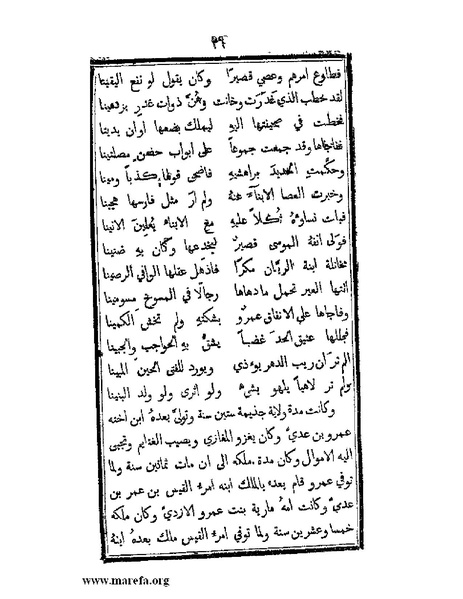 ٣٩
فطاوع امرهم وعصى قصيرًا وكان يقول لو نفع اليقينا
لقد خطب الذي غدرت وخانت وهنّ ذوات غدر
فخطت في صحيفتها اليهِ ليملك بضعها او ان يدينا
ففاجاها وقد جمعت جموعًا على ابواب حصن مصلتينا
وحكّمت الحديد براهشيهِ فاضحى قولها كذبًا ومينا
وخبرت العصا الانباءَ عنهُ ولم ارَ مثل فارسها هجينا
فبات نساوهُ عليهِ مع الابناء يعلنّ الانينا
فولى انفهُ الموسى قصيرٌ ليخدعها وكان بهِ ضنينا
مخاتلة ابنة الريّان مكرًا فاذهل عقلها الوافي الرصينا
اتتها العير تحمل ما دهاها رجالًا في المسوح مسومينا
وفاجاها على الانفاق عمرٌو بشكتهِ ولم تخش الكمينا
فجللها عتيق الحدّ غضبًا يشقّ بهِ الحواجب والجبينا
الم ترَ ان ريب الدهر يوءذي ويورد للفتى الحين المبينا
ولم ترَ لاهيًا يلهو بشرهِ ولو اثرى ولو ولد البنينا
وكانت مدة ولاية جذيمة ستين سنة وتولّى بعدهُ ابن اخته
عمرو بن عديّ وكان يغزو المغازي ويصيب الغنايم وتجبى
اليه الاموال وكان مدة ملكه الى ان مات ثمانين سنة ولما
توفي عمرو قام بعده بالملك ابنه امرء القيس بن عمر بن
عديّ وكانت امهُ مارية بنت عمرو الازديّ وكان ملكه
خمسا وعشرين سنة ولما توفي امرء القيس ملك بعدهُ ابنهُ
www.marefa.org